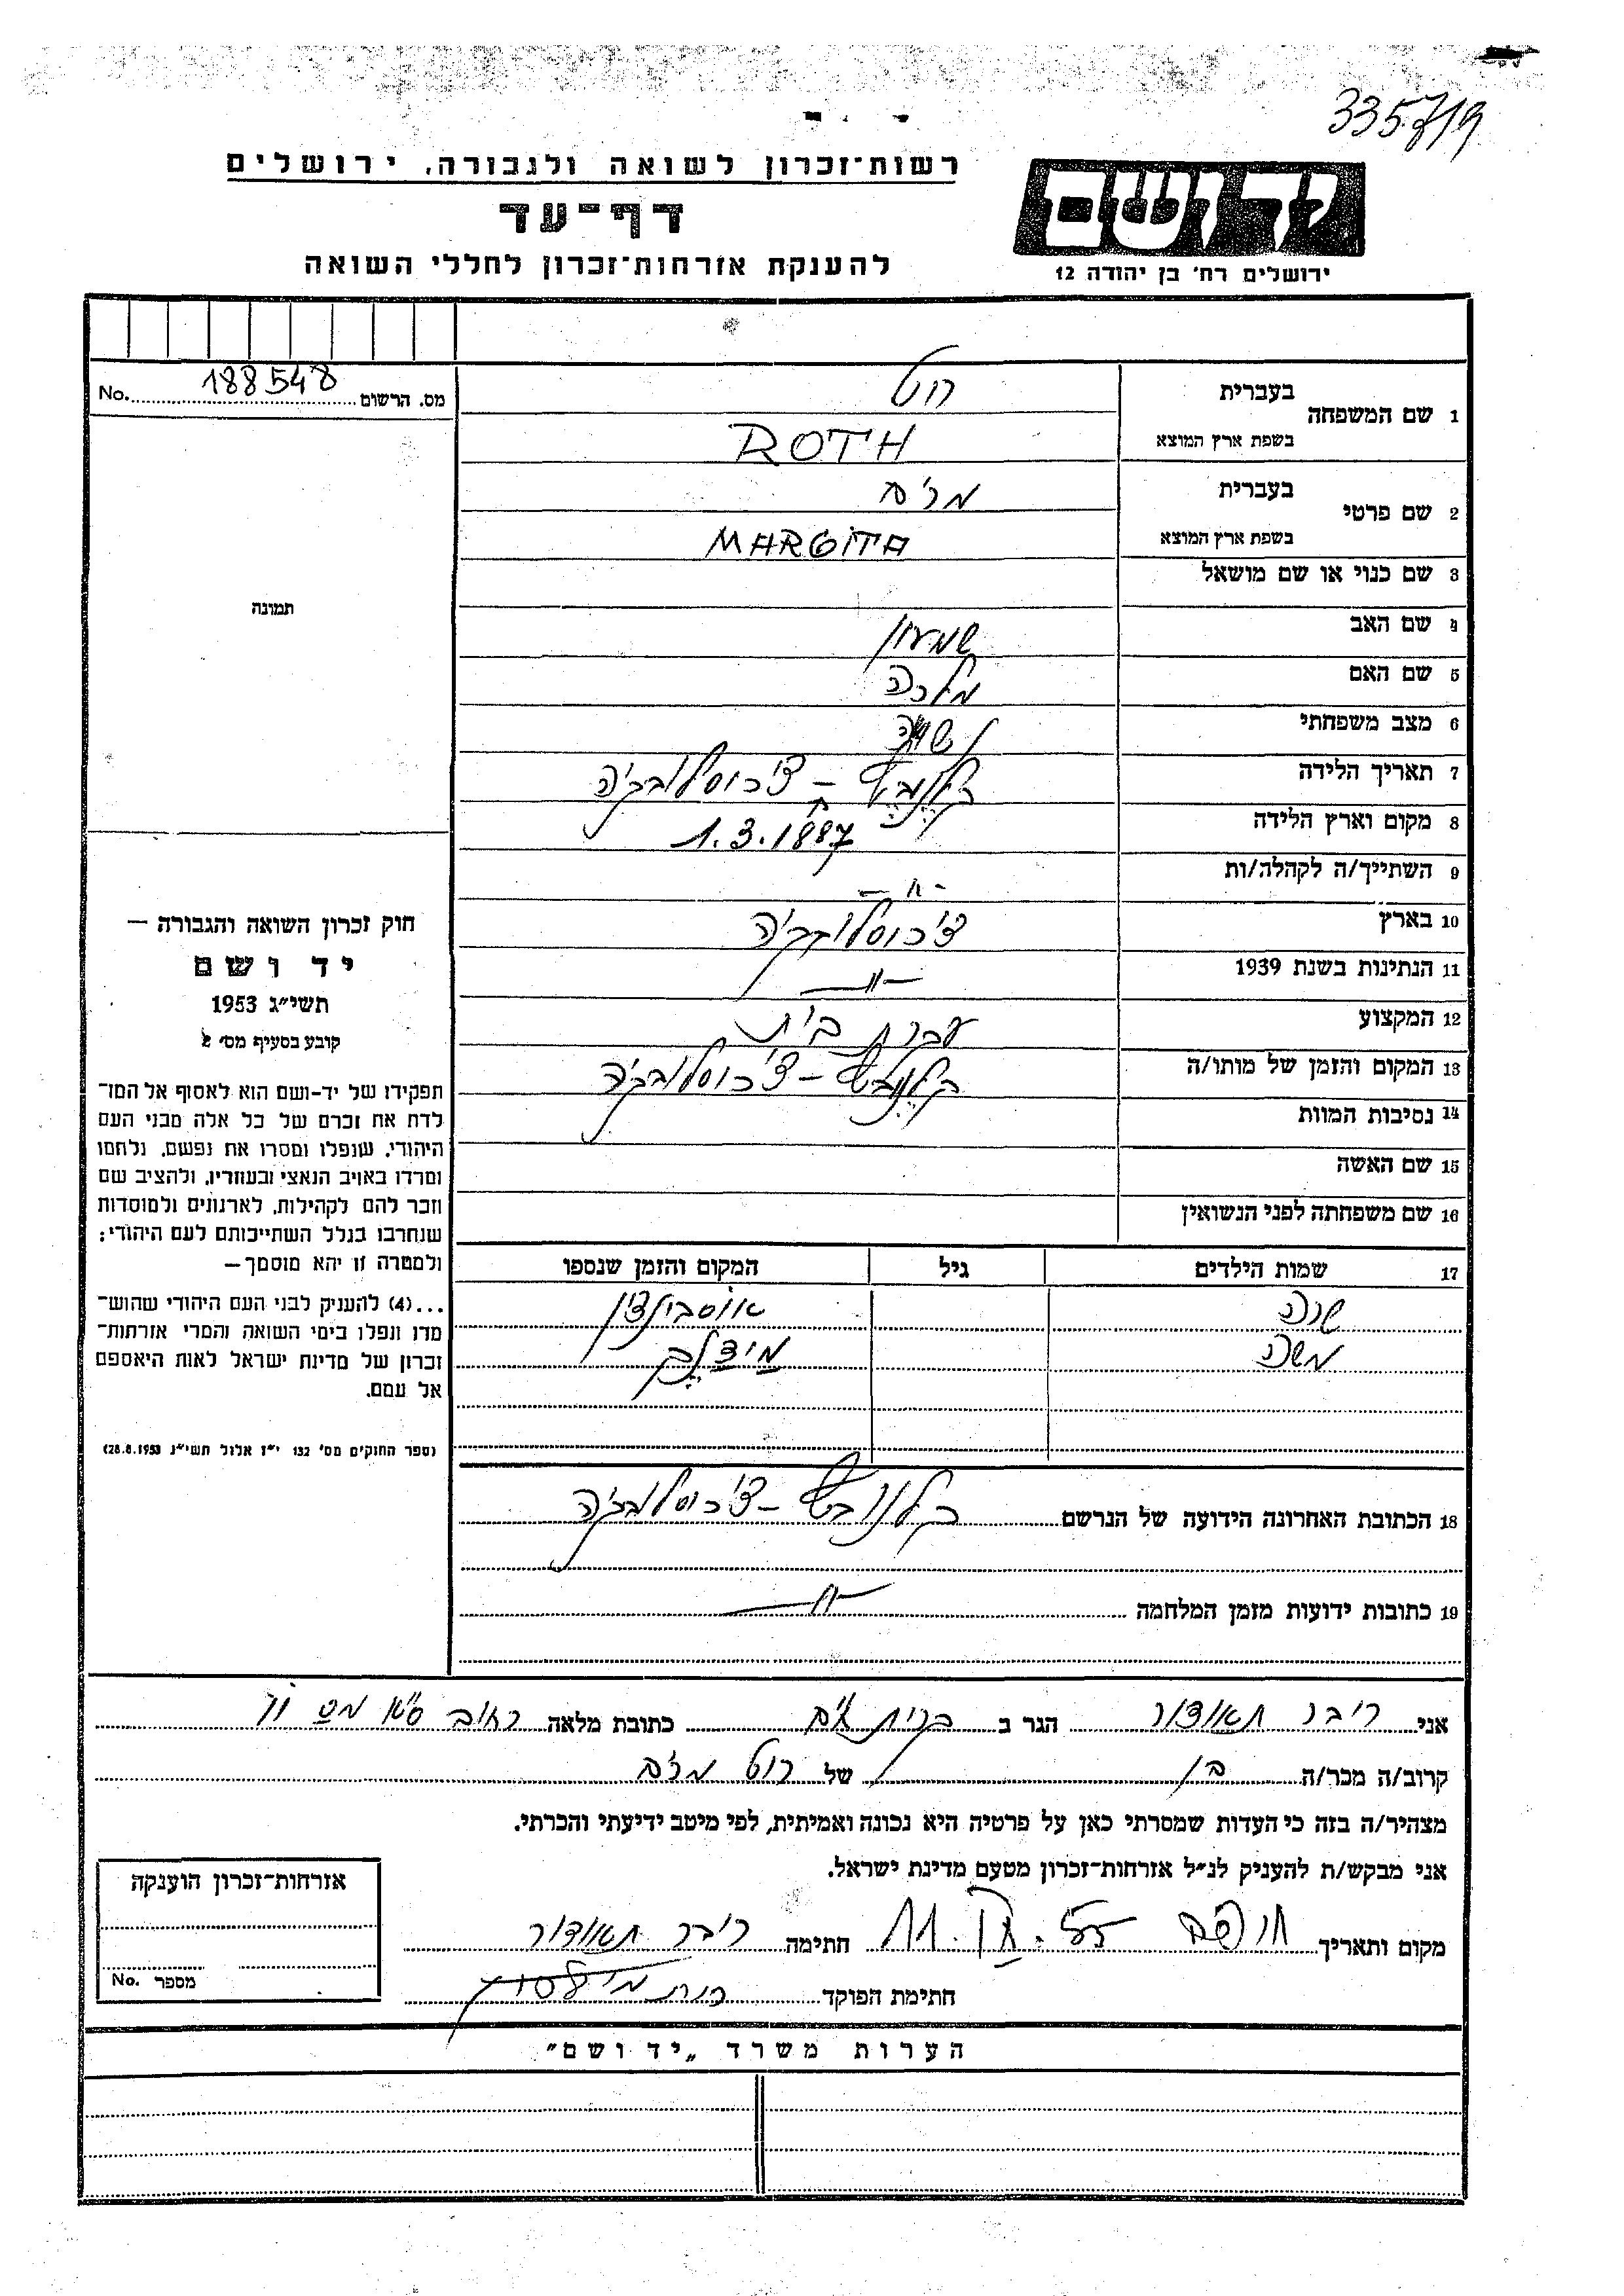 335719
רשות־זכרון לשואה ולגבורה, ירושלים
דף־עד
להענקת אזרחות־זכרון לחללי השואה
יד ושם
ירושלים רח' בן יהודה 12
מס. הרשום 188548 No.
1 שם המשפחה
בעברית רוט
בשפת ארץ המוצא ROTH
2 שם פרטי
בעברית מרים
בשפת ארץ המוצא MARGITA
3 שם כנוי או שם מושאל
4 שם האב שמעון
5 שם האם מלכה
6 מצב משפחתי נשואה
7 תאריך הלידה - צ'כוסלובקיה
8 מקום וארץ הלידה 1.3.1887
9 השתייך/ה לקהלה/ות -"-
10 בארץ צ'כוסלובקיה
11 הנתינות בשנת 1939 -"-
12 המקצוע עקרת בית
13 המקום והזמן של מותו/ה - צ'כוסלובקיה
14 נסיבות המוות
15 שם האשה
16 שם משפחתה לפני הנשואין
17 שמות הילדים גיל המקום והזמן שנספו
שרה אושביצין
משה
18 הכתובת האחרונה הידועה של הנרשם - צ'כוסלובקיה
19 כתובות ידועות מזמן המלחמה -"-
תמונה
חוק זכרון השואה והגבורה –
יד ושם
תשי"ג 1953
קובע בסעיף מס' 2
תפקידו של יד-ושם הוא לאסוף אל המו־
לדת את זכרם של כל אלה מבני העם
היהודי, שנפלו ומסרו את נפשם, נלחמו
ומרדו באויב הנאצי ובעוזריו, ולהציב שם
וזכר להם לקהילות, לארגונים ולמוסדות
שנחרבו בגלל השתייכותם לעם היהודי;
ולמטרה זו יהא מוסמך –
...(4) להעניק לבני העם היהודי שהוש־
מדו ונפלו בימי השואה והמרי אזרחות־
זכרון של מדינת ישראל לאות היאספם
אל עמם.
(ספר החוקים מס' 132 י"ז אלול תשי"ג 28.8.1953)
אני ריבר תאודור הגר ב קרית ים כתובת מלאה רחוב
קרוב/ה מכר/ה בן של רוט מרים
מצהיר/ה בזה כי העדות שמסרתי כאן על פרטיה היא נכונה ואמיתית, לפי מיטב ידיעתי והכרתי.
אני מבקש/ת להעניק לנ"ל אזרחות־זכרון מטעם מדינת ישראל.
מקום ותאריך חתימה ריבר תאודור
חתימת הפוקד
אזרחות־זכרון הוענקה
מספר No.
הערות משרד „יד ושם"